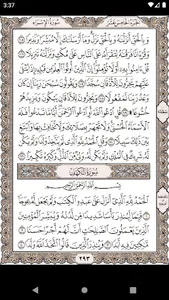 3:37
الجزء الخامس عشر
سورة الإسراء
وَبِالْحَقِّ أَنزَلْنَاهُ وَبِالْحَقِّ نَزَلَ وَمَا أَرْسَلْنَاكَ إِلَّا مُبَشِّرًا وَنَذِيرًا ١٠٥
وَقُرْآنًا فَرَقْنَاهُ لِتَقْرَأَهُ عَلَى النَّاسِ عَلَىٰ مُكْثٍ وَنَزَّلْنَاهُ تَنزِيلًا ١٠٦
قُلْ آمِنُوا بِهِ أَوْ لَا تُؤْمِنُوا إِنَّ الَّذِينَ أُوتُوا الْعِلْمَ مِن قَبْلِهِ إِذَا يُتْلَىٰ
عَلَيْهِمْ يَخِرُّونَ لِلْأَذْقَانِ سُجَّدًا ١٠٧ وَيَقُولُونَ سُبْحَانَ رَبِّنَا إِن كَانَ وَعْدُ رَبِّنَا
لَمَفْعُولًا ١٠٨ وَيَخِرُّونَ لِلْأَذْقَانِ يَبْكُونَ وَيَزِيدُهُمْ خُشُوعًا ١٠٩
قُلِ ادْعُوا اللَّهَ أَوِ ادْعُوا الرَّحْمَٰنَ أَيًّا مَّا تَدْعُوا فَلَهُ الْأَسْمَاءُ الْحُسْنَىٰ
وَلَا تَجْهَرْ بِصَلَاتِكَ وَلَا تُخَافِتْ بِهَا وَابْتَغِ بَيْنَ ذَٰلِكَ سَبِيلًا ١١٠
وَقُلِ الْحَمْدُ لِلَّهِ الَّذِي لَمْ يَتَّخِذْ وَلَدًا وَلَمْ يَكُن لَّهُ شَرِيكٌ فِي
الْمُلْكِ وَلَمْ يَكُن لَّهُ وَلِيٌّ مِّنَ الذُّلِّ وَكَبِّرْهُ تَكْبِيرًا ١١١
سورة الكهف
بِسْمِ اللَّهِ الرَّحْمَٰنِ الرَّحِيمِ
الْحَمْدُ لِلَّهِ الَّذِي أَنزَلَ عَلَىٰ عَبْدِهِ الْكِتَابَ وَلَمْ يَجْعَل لَّهُ عِوَجًا ١
قَيِّمًا لِّيُنذِرَ بَأْسًا شَدِيدًا مِّن لَّدُنْهُ وَيُبَشِّرَ الْمُؤْمِنِينَ
الَّذِينَ يَعْمَلُونَ الصَّالِحَاتِ أَنَّ لَهُمْ أَجْرًا حَسَنًا ٢
مَّاكِثِينَ فِيهِ أَبَدًا ٣ وَيُنذِرَ الَّذِينَ قَالُوا اتَّخَذَ اللَّهُ وَلَدًا ٤
٢٩٣